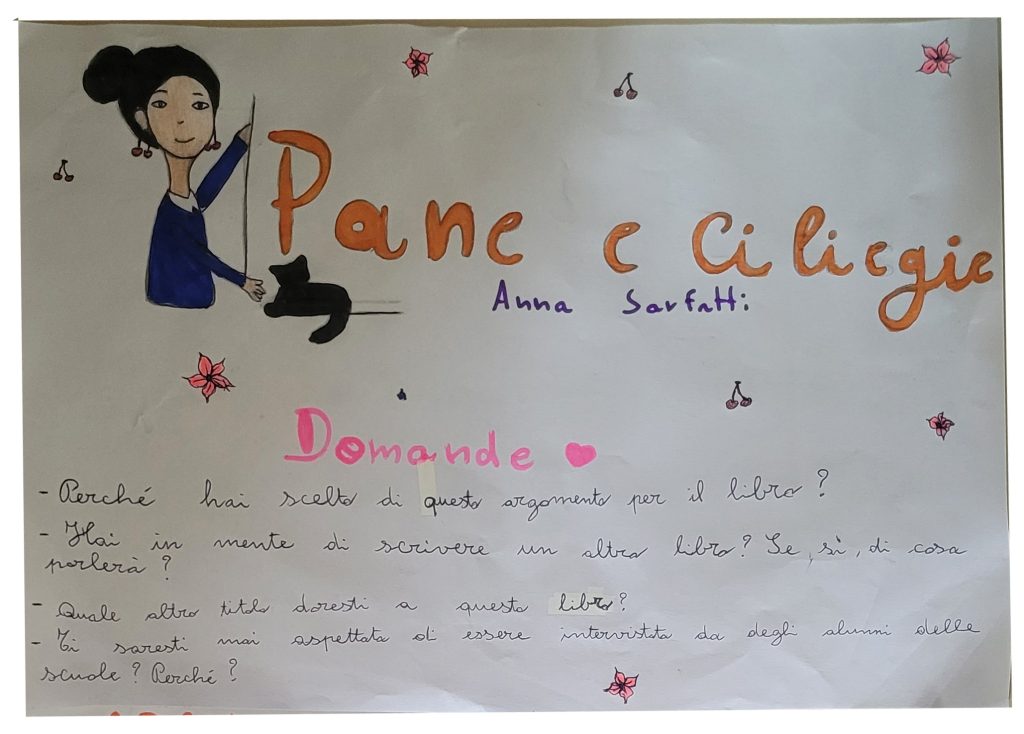 Pane e Ciliegie
Anna Sarfatti
Domande
- Perché hai scelto di questo argomento per il libro?
- Hai in mente di scrivere un altro libro? Se, sì, di cosa
parlerà?
- Quale altro titolo daresti a questo libro?
- Ti saresti mai aspettata di essere intervistata da degli alunni delle
scuole? Perché?